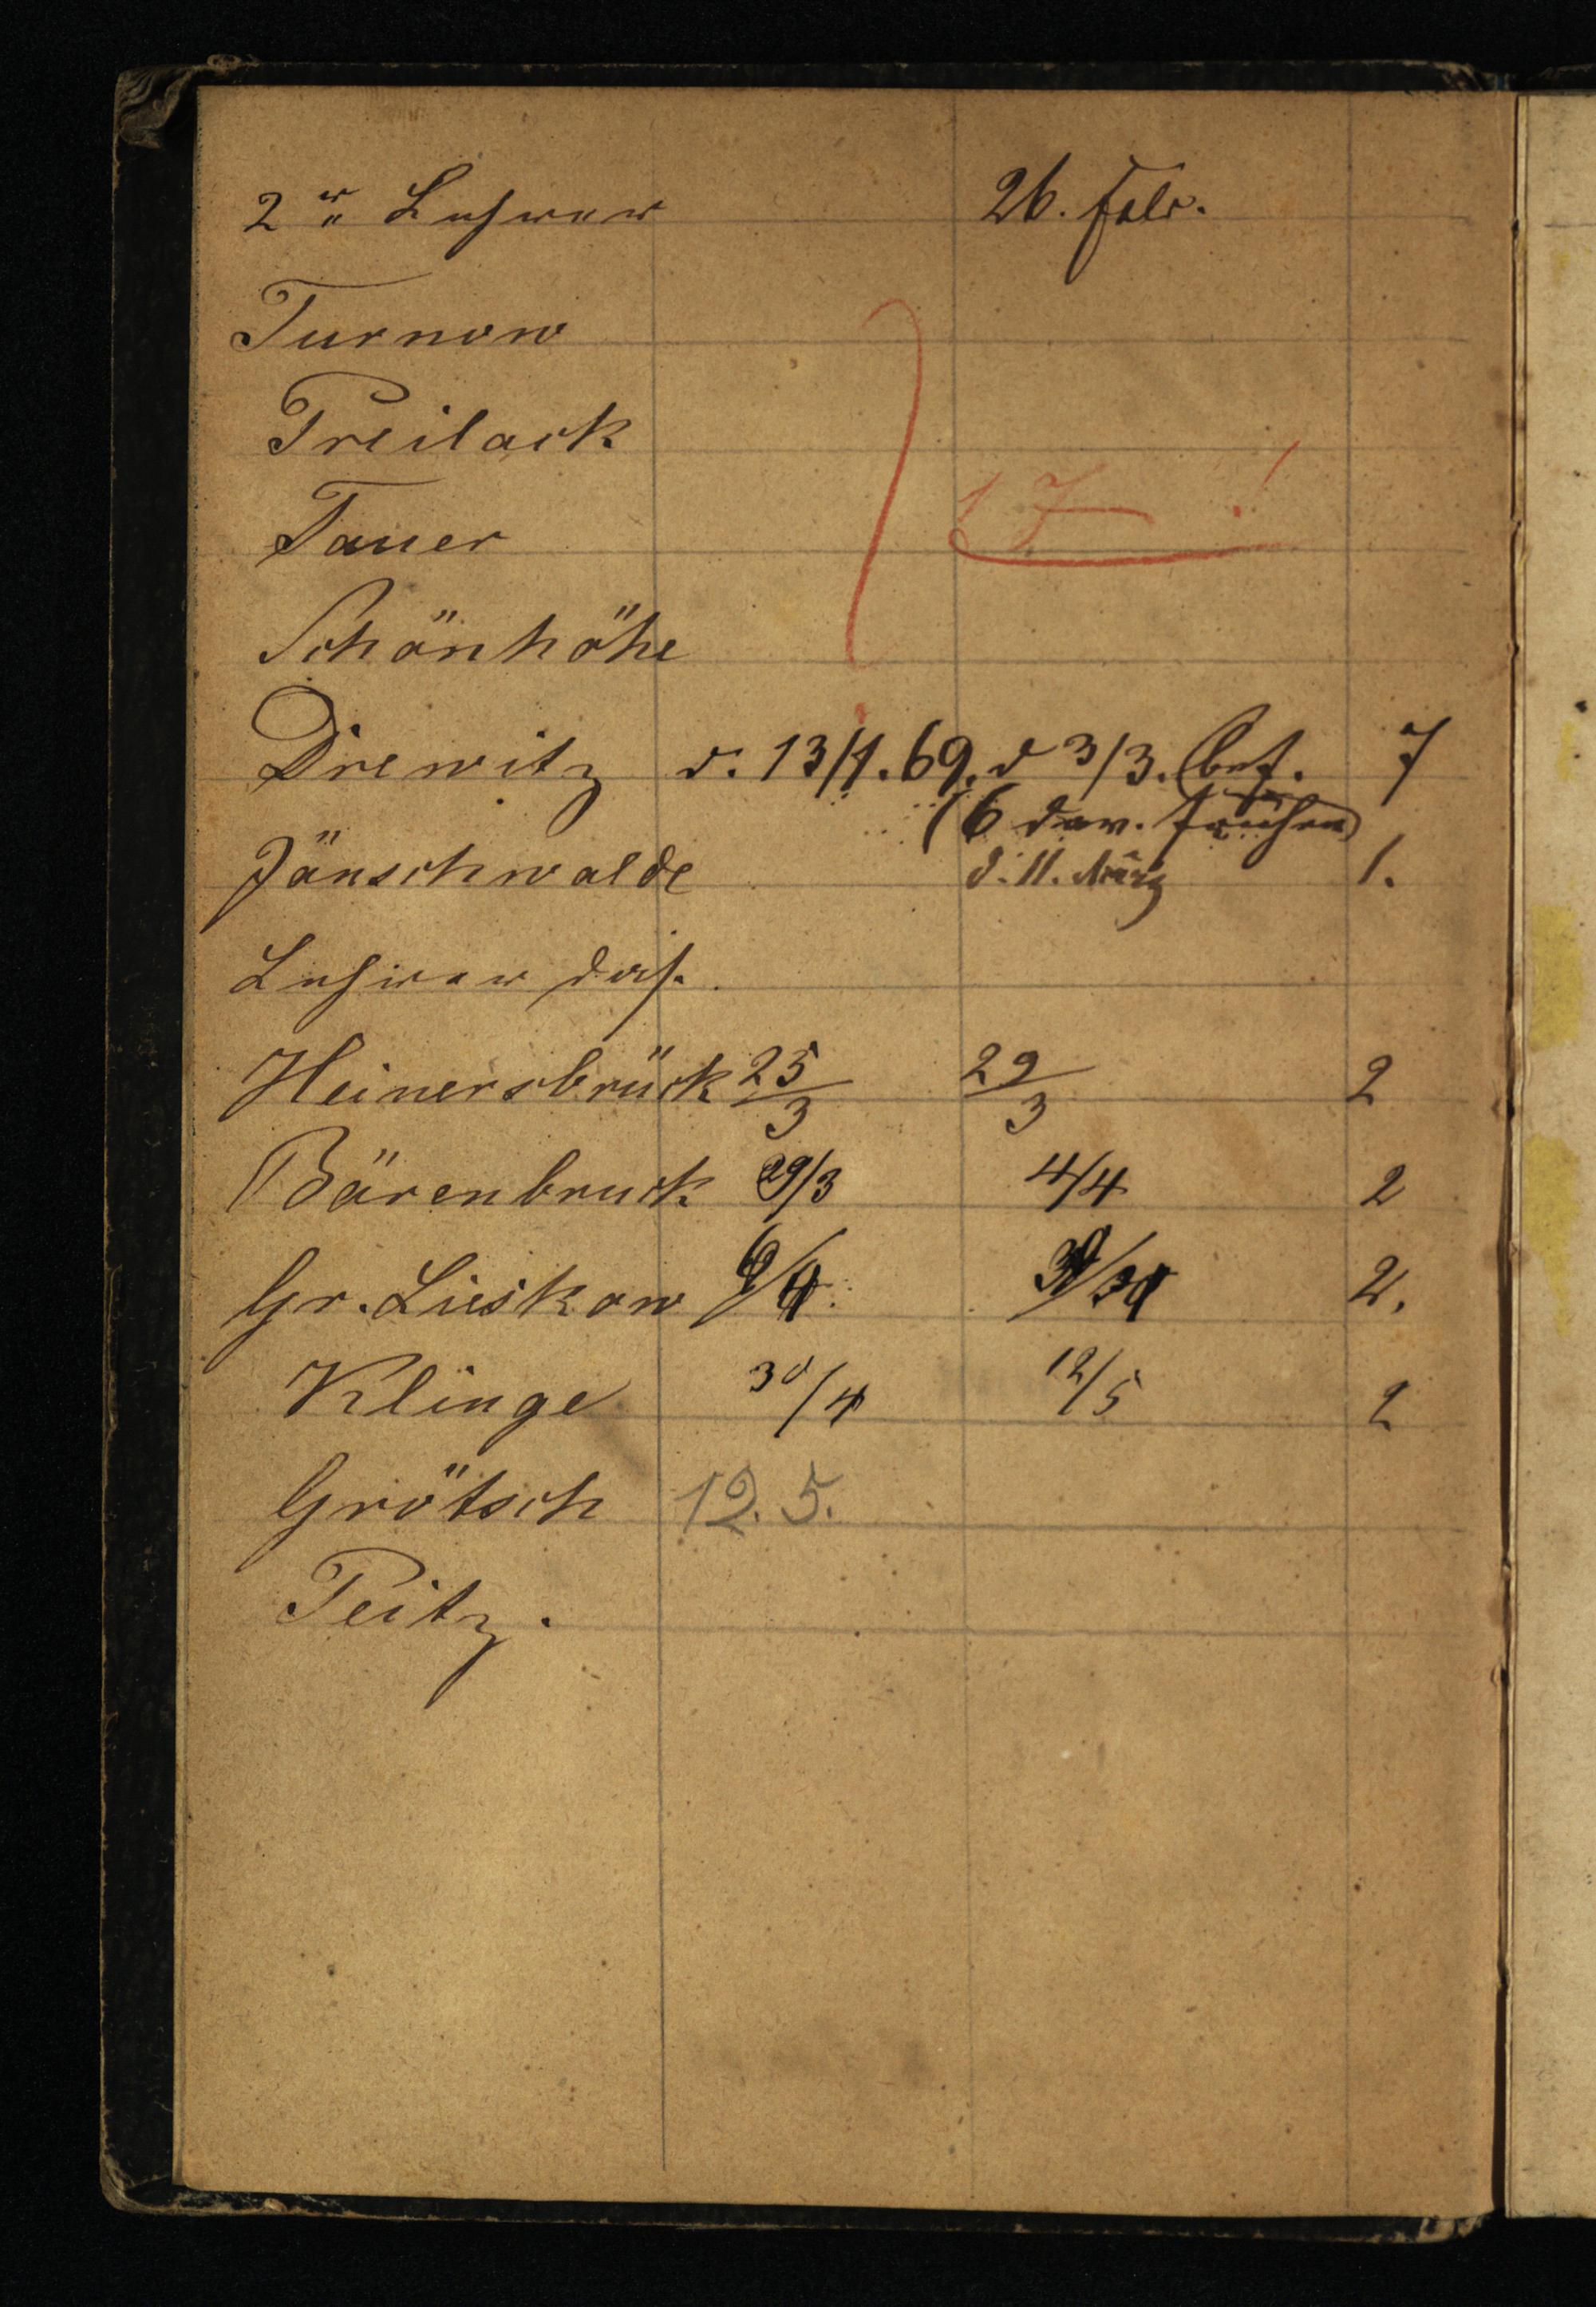 2ter Lehrer 26. Febr.
Turnow
Preilack
Tauer 17 !
Schönhöhe
Drewitz d. 13/1. 69. d 3/3. 7
(6 dav. früher)
Jänschwalde d. 11. März 1.
Lehrer das.
Heinersbrück 25/3 29/3 2
Bärenbruck 29/3 4/4 2
Gr. Lieskow 2.
Klinge 30/4 12/5 2
Grötsch 12. 5.
Peitz.